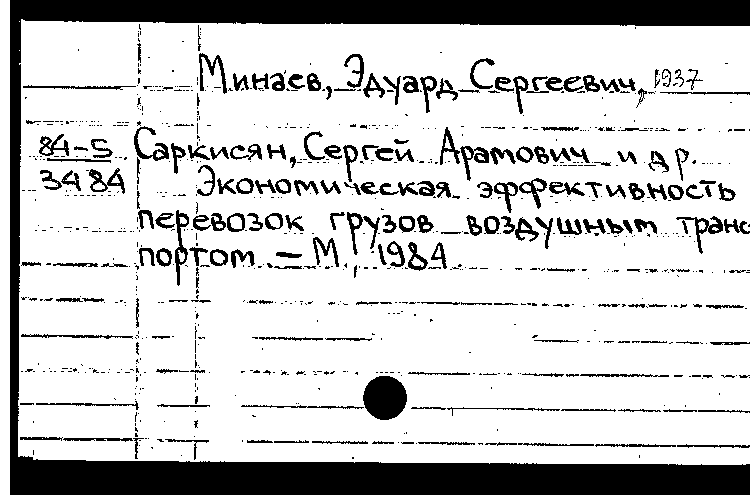 Минаев, Эдуард Сергеевич, 1937
84-5 Саркисян, Сергей Арамович и др.
3484 Экономическая эффективность
перевозок грузов воздушным транс
портом. – М., 1984.